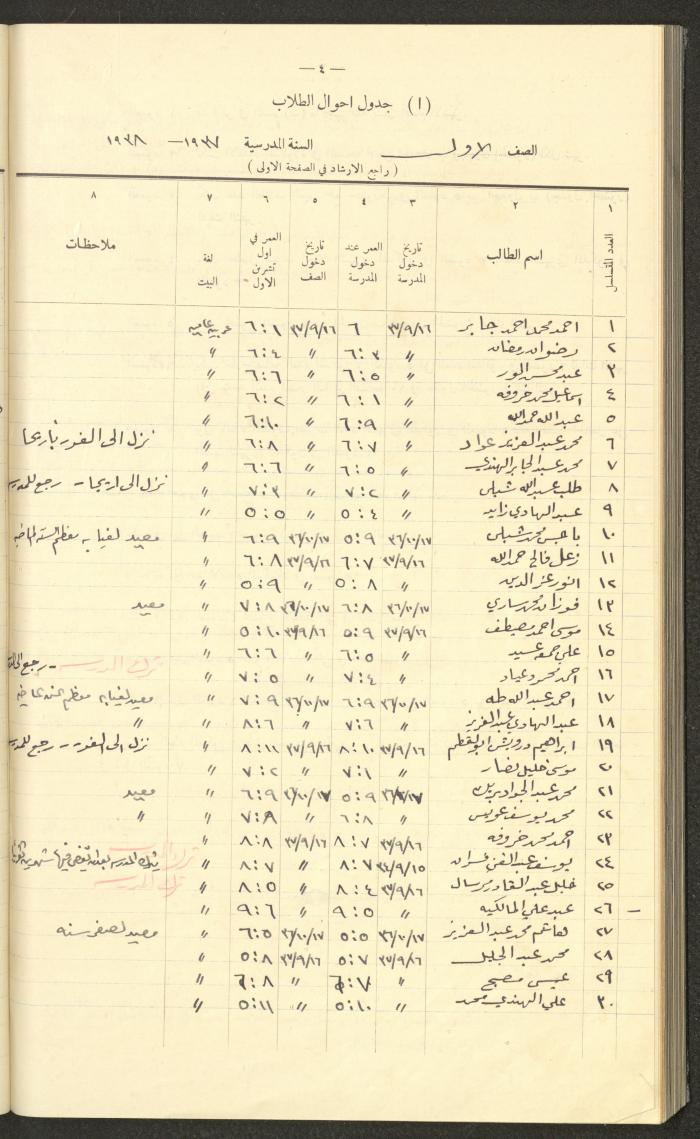 — ٤ —
(١) جدول احوال الطلاب
الصف الاول السنة المدرسية ١٩٣٧ — ١٩٣٨
(راجع الارشاد في الصفحة الاولى)
١ ٢ ٣ ٤ ٥ ٦ ٧ ٨
العدد المتسلسل اسم الطالب تاريخ دخول المدرسة العمر عند دخول المدرسة تاريخ دخول الصف العمر في اول تشرين الاول لغة البيت ملاحظات
١ احمد محمد احمد جابر ٣٧/٩/١٦ ٦ ٣٧/٩/١٦ ٦:١ عربية عامية
٢ رضوان رمضان 〃 ٦:٣ 〃 ٦:٤ 〃
٣ عبد محسن 〃 ٦:٥ 〃 ٦:٦ 〃
٤ اسماعيل محمد خروفه 〃 ٦:١ 〃 ٦:٢ 〃
٥ عبد الله حمدالله 〃 ٦:٩ 〃 ٦:١٠ 〃
٦ محمد عبد العزيز عواد 〃 ٦:٧ 〃 ٦:٨ 〃 نزل الى الغور بأريحا
٧ محمد عبد الجابر الهندي 〃 ٦:٥ 〃 ٦:٦ 〃
٨ طلب عبد الله شبلي 〃 ٧:٢ 〃 ٧:٣ 〃 نزل الى اريحا - رجع للمدرسة
٩ عبد الهادي زايد 〃 ٥:٤ 〃 ٥:٥ 〃
١٠ محمد شبلي ٣٦/١٠/١٧ ٥:٩ ٣٦/١٠/١٧ ٦:٩ 〃 معيد لغيابه معظم السنة الماضية
١١ زعل فالح حمدالله ٣٧/٩/١٦ ٦:٧ ٣٧/٩/١٦ ٦:٨ 〃
١٢ انور عز الدين 〃 ٥:٨ 〃 ٥:٩ 〃
١٣ فوزان محمد ساري ٣٦/١٠/١٧ ٦:٨ ٣٦/١٠/١٧ ٧:٨ 〃 معيد
١٤ موسى احمد مصيطف ٣٧/٩/١٦ ٥:٩ ٣٧/٩/١٦ ٥:١٠ 〃
١٥ علي جمعه عيد 〃 ٦:٥ 〃 ٦:٦ 〃 ترك المدرسة - رجع
١٦ احمد محمود عياد 〃 ٧:٤ 〃 ٧:٥ 〃
١٧ احمد عبد الله طه ٣٦/١٠/١٧ ٦:٩ ٣٦/١٠/١٧ ٧:٩ 〃 معيد لغيابه معظم
١٨ عبد الهادي عبد العزيز 〃 ٧:٦ 〃 ٨:٦ 〃 〃
١٩ ابراهيم درويش ٣٧/٩/١٦ ٨:١٠ ٣٧/٩/١٦ ٨:١١ 〃 نزل الى الغور - رجع للمدرسة
٢٠ موسى خليل نصار 〃 ٧:١ 〃 ٧:٢ 〃
٢١ محمد عبد الجواد ٣٦/١٠/١٧ ٥:٩ ٣٦/١٠/١٧ ٦:٩ 〃 معيد
٢٢ محمد يوسف عويس 〃 ٦:٨ 〃 ٧:٨ 〃 〃
٢٣ احمد محمد خروفه ٣٧/٩/١٦ ٨:٧ ٣٧/٩/١٦ ٨:٨ 〃
٢٤ يوسف عبد الغني ٣٤/٩/١٥ ٨:٧ 〃 ٨:٧ 〃 ترك المدرسة
٢٥ خليل عبد القادر ٣٧/٩/١٦ ٨:٤ 〃 ٨:٥ 〃 ترك المدرسة
– ٢٦ عبد علي المالكيه 〃 ٩:٥ 〃 ٩:٦ 〃
٢٧ هاشم محمد عبد العزيز ٣٦/١٠/١٧ ٥:٥ ٣٦/١٠/١٧ ٦:٥ 〃 معيد لصغر سنه
٢٨ محمد عبد الجليل ٣٧/٩/١٦ ٥:٧ ٣٧/٩/١٦ ٥:٨ 〃
٢٩ عيسى مصبح 〃 ٦:٧ 〃 ٦:٨ 〃
٣٠ علي الهندي محمد 〃 ٥:١٠ 〃 ٥:١١ 〃